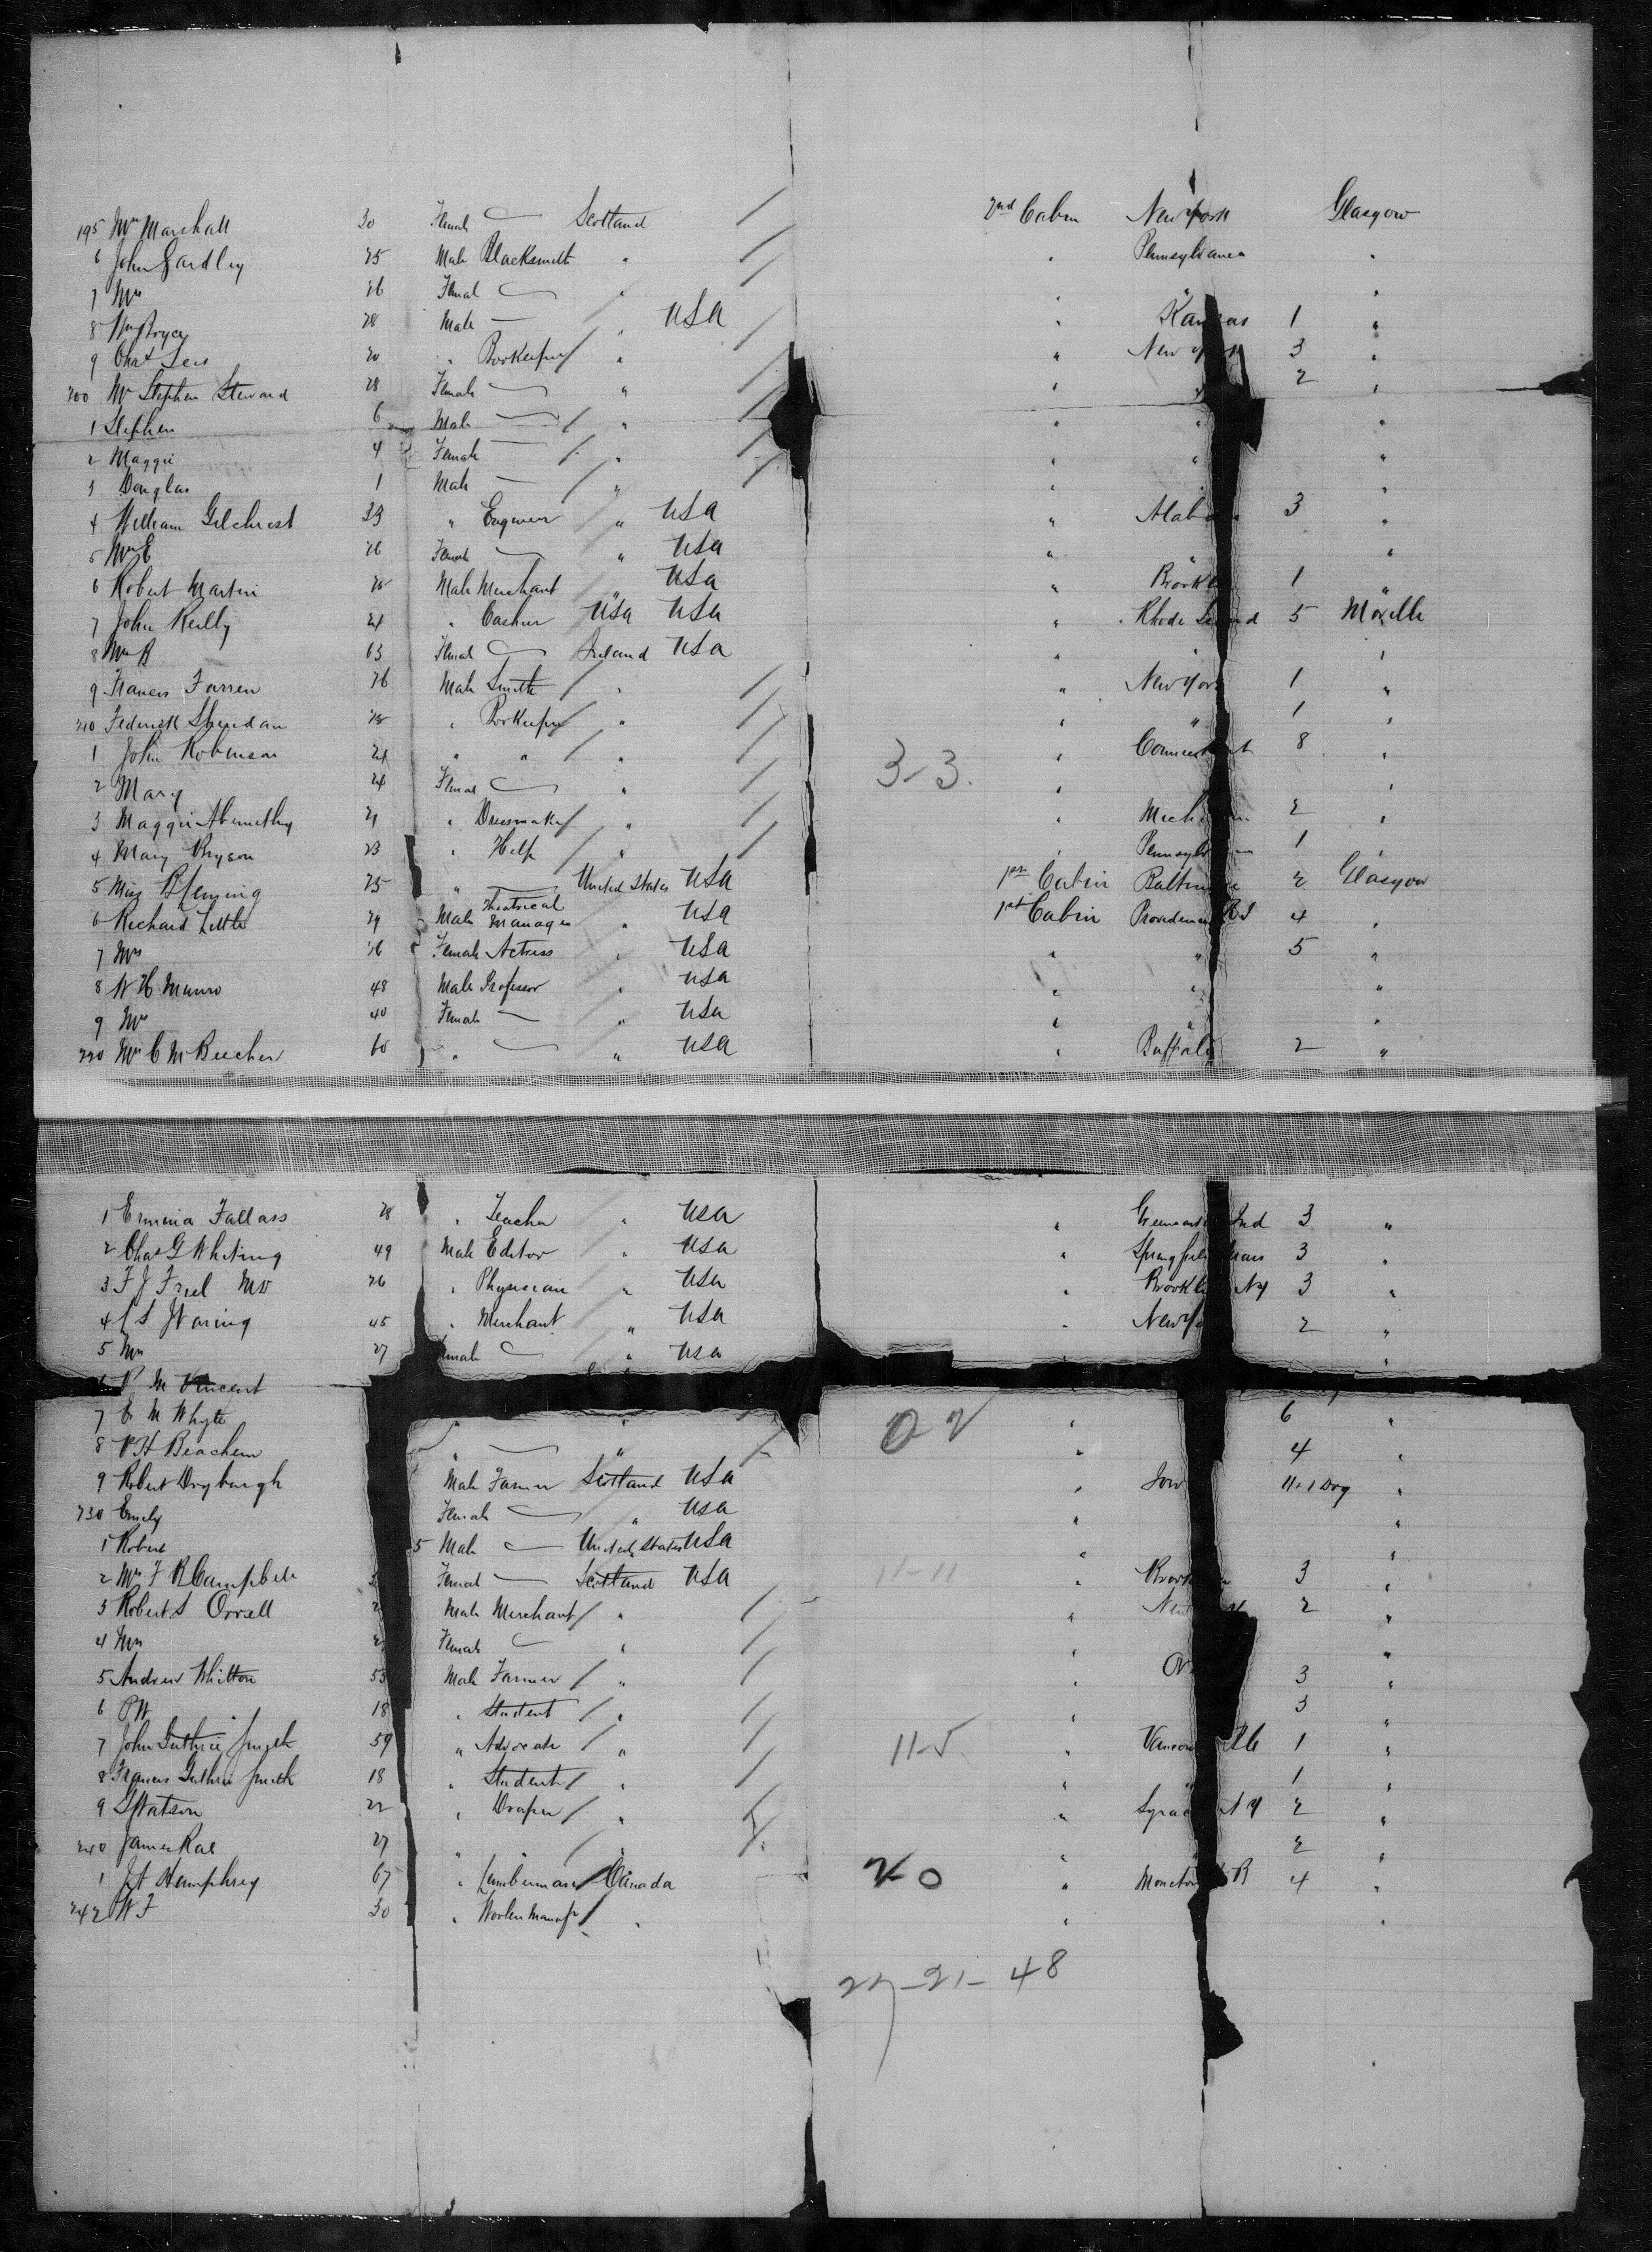 195 Mrs Marshall 30 Female Scotland / 2nd Cabin New York Glasgow
6 John Yardley 25 Male Blacksmith " / " Pennsylvania "
7 Mrs 26 Female " / " " "
8 Wm Bryce 28 Male " USA / " Kansas 1 "
9 Chas Lees 20 " Bookeeper " / " New York 3 "
200 Mrs Stephen Steward 28 Female " / " " 2 "
1 Stephen 6 Male / " / " " "
2 Maggie 4 Female / " / " " "
3 Douglas 1 Male / " / " "
4 William Gilchrist 33 " Engineer / " USA " Alaba 3 "
5 Mrs E 26 Female " USA " " "
6 Robert Martin 25 Male Merchant " USA " Brookl 1 "
7 John Reilly 24 " Cashier USA USA " Rhode Island 5 Moville
8 Mrs B 63 Female Ireland USA " " "
9 Francis Farren 26 Male Smith / " / " New York 1 "
210 Federick Sheridan 28 " Bookeeper / " / " " 1 "
1 John Robinson 24 " " / " / 3-3. " Connecticut 8 "
2 Mary 24 Female " / " "
3 Maggie Abernethy 21 " Dressmaker / " / " Michi 2 "
4 Mary Bryson 23 " Help / " / " Pennsylv 1 "
5 Miss Fleming 25 " United States USA 1st Cabin Baltimore 2 Glasgow
6 Richard Little 29 Male Theatrical Manager " USA 1st Cabin Providence RI 4 "
7 Mrs 26 Female Actress " USA " " 5 "
8 W H Munro 48 Male Professor " USA " " "
9 Mrs 40 Female " USA " " "
220 Mrs C M Beecher 60 " " USA " Buffalo 2 "
1 Erminia Fallass 28 " Teacher " USA " Greencastle Ind 3 "
2 Chas G Whiting 49 Male Editor " USA " Springfiel Mass 3 "
3 F J Friel MD 26 " Physician " USA " Brookl NY 3 "
4 Waring 45 " Merchant " USA " New Yo 2 "
5 Mrs 27 emale " USA "
6 M Vincent
7 C M Whyte " " / 02 " 6 "
8 Beachem " " / " 4 "
9 Robert Dryburgh Male Farmer Scotland USA " Iow 11-1 Dog "
230 Emily Female " USA " "
1 Robert 5 Male United States USA " "
2 Mrs F R Campbell Female Scotland USA 11-11 " Brook 3 "
3 Robert S Orrell Male Merchant / " / " New 2 "
4 Mrs Female " / " "
5 Andrew Whitton 53 Male Farmer / " / " 3 "
6 P W 18 " Student / " / " 3 "
7 John Guthrie Smith 59 " Advocate / " / 11-5 " Vancou 1 "
8 Francis Guthrie Smith 18 " Student / " / " 1 "
9 Watson 22 " Draper / " / " Syrac NY 2 "
240 James Rae 27 " " / " / " 2 "
1 Humphrey 67 " Lumberman / Canada 20 " Moncton B 4 "
242 W F 30 " Woolen Manufr / " " "
27-21-48